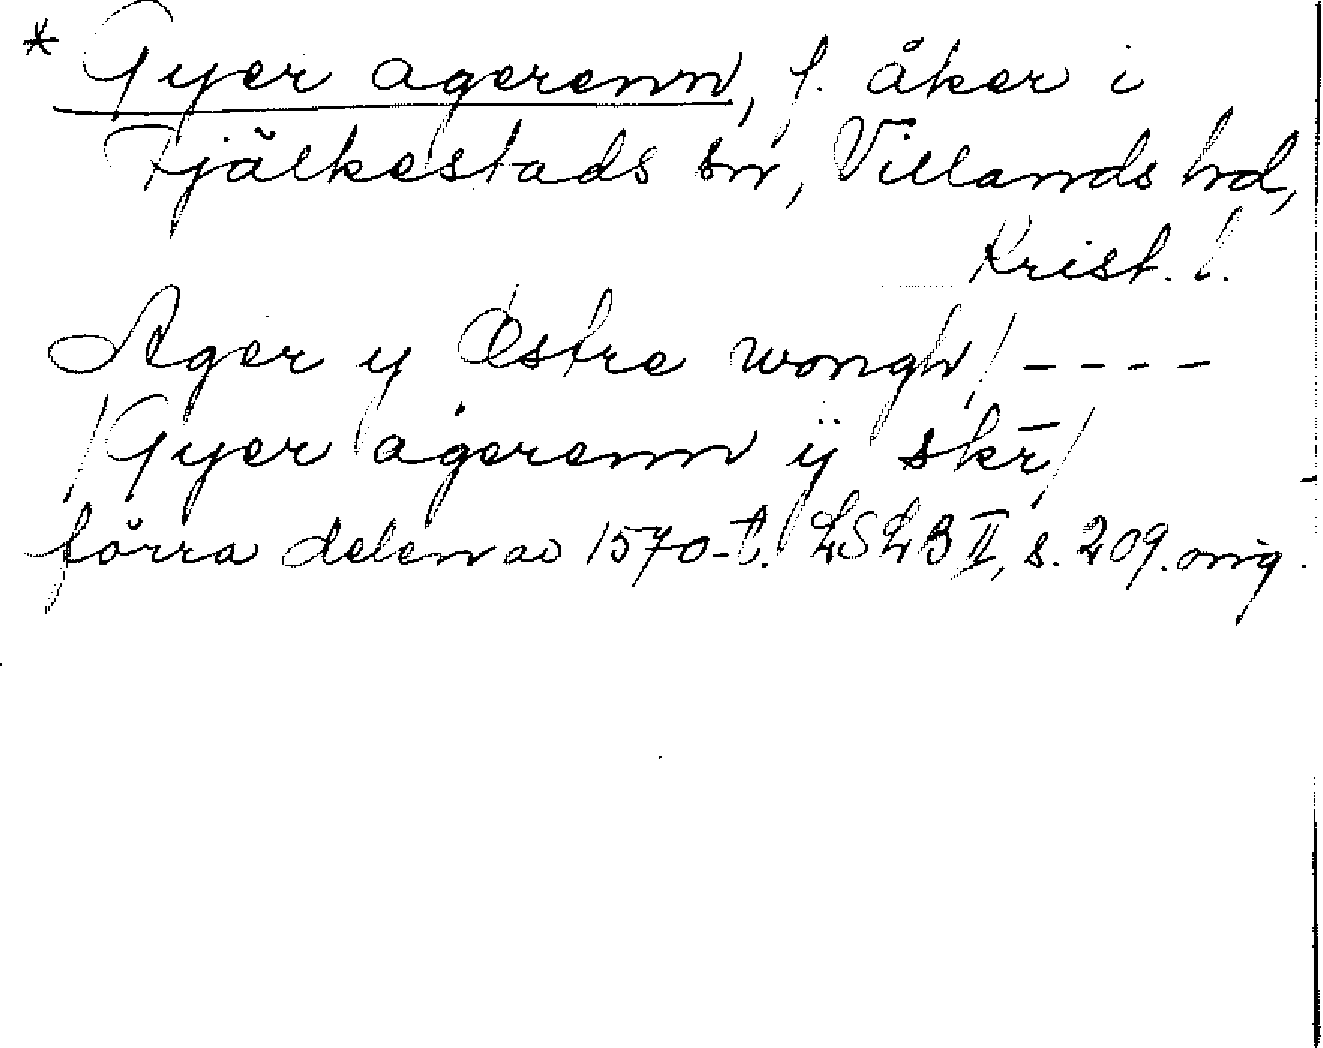 * Gyer agerenn, f. åker i
Fjälkestads sn, Villands hd,
Krist. l.
Ager y Østre wongh / - - - -
/ Gyer agerenn ÿ skr̄ /
förra delen av 1570-t. LSLB II, s. 209. orig.